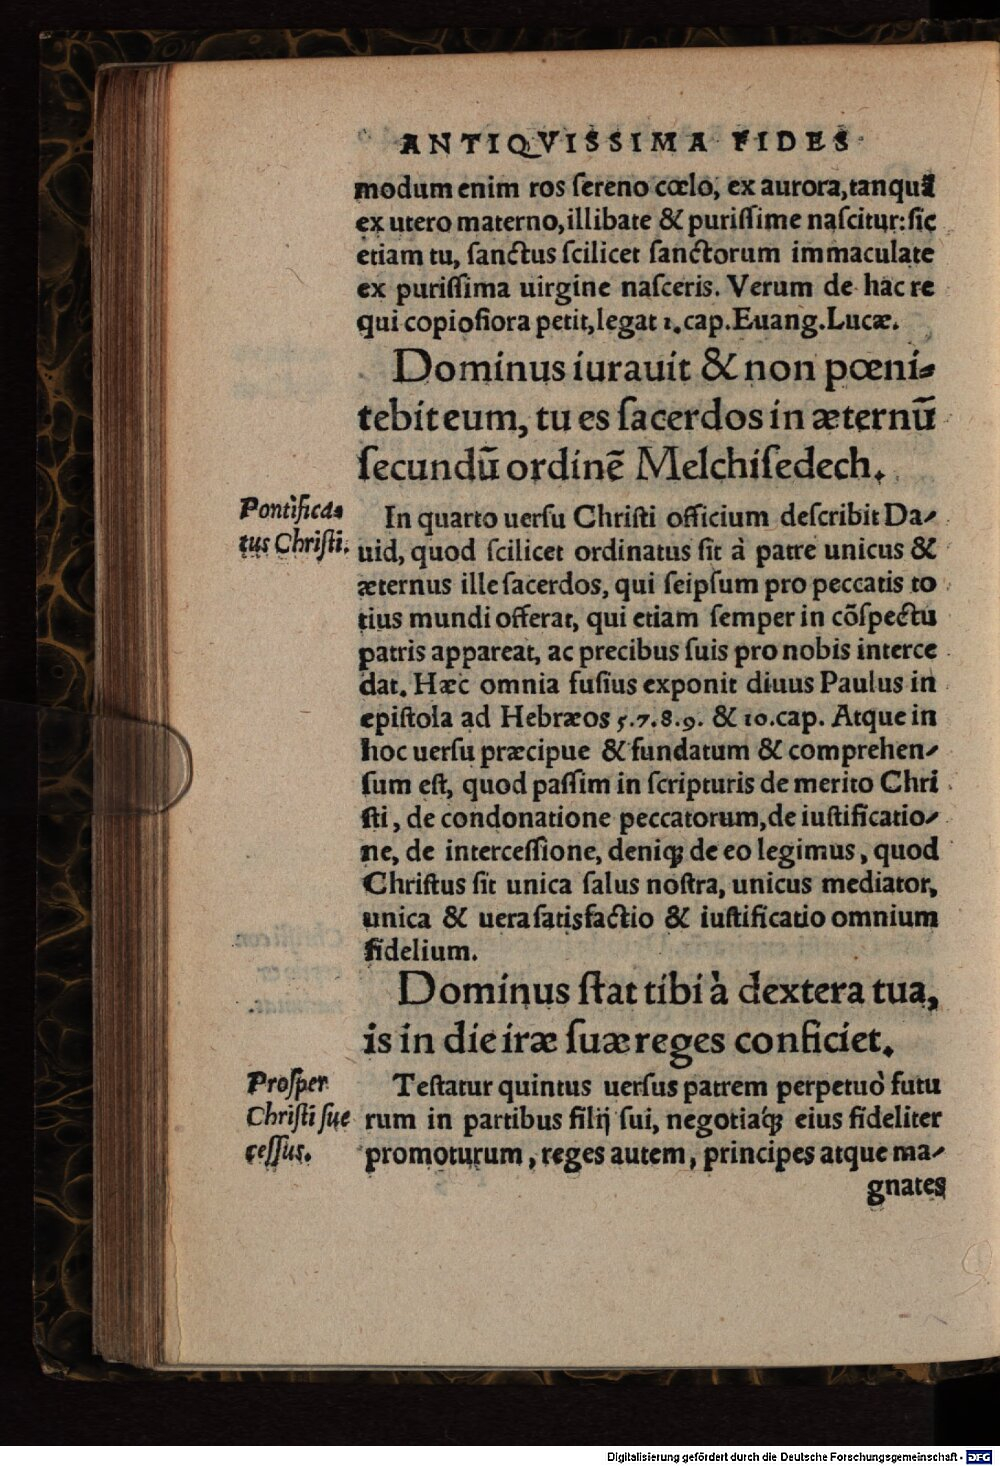 ANTIQVISSIMA FIDES
modum enim ros ſereno cœlo, ex aurora, tanquã
ex utero materno, illibate & puriſſime naſcitur: ſic
etiam tu, ſanctus ſcilicet ſanctorum immaculate
ex puriſſima uirgine naſceris. Verum de hac re
qui copioſiora petit, legat 1. cap. Euang. Lucæ.
Dominus iurauit & non pœni-
tebit eum, tu es ſacerdos in æternũ
ſecundũ ordinẽ Melchiſedech.
Pontifica-
tus Chriſti.
In quarto uerſu Chriſti officium deſcribit Da-
uid, quod ſcilicet ordinatus ſit à patre unicus &
æternus ille ſacerdos, qui ſeipſum pro peccatis to
tius mundi offerat, qui etiam ſemper in cõſpectu
patris appareat, ac precibus ſuis pro nobis interce
dat. Hæc omnia fuſius exponit diuus Paulus in
epiſtola ad Hebræos 5.7.8.9. & 10. cap. Atque in
hoc uerſu præcipue & fundatum & comprehen-
ſum eſt, quod paſſim in ſcripturis de merito Chri
ſti, de condonatione peccatorum, de iuſtificatio-
ne, de interceſſione, deniq; de eo legimus, quod
Chriſtus ſit unica ſalus noſtra, unicus mediator,
unica & uera ſatisfactio & iuſtificatio omnium
fidelium.
Dominus ſtat tibi à dextera tua,
is in die iræ ſuæ reges conficiet.
Proſper
Chriſti ſuc
ceſſus.
Teſtatur quintus uerſus patrem perpetuò futu
rum in partibus filij ſui, negotiáq; eius fideliter
promoturum, reges autem, principes atque ma-
gnates
Digitalisierung gefördert durch die Deutsche Forschungsgemeinschaft - DFG